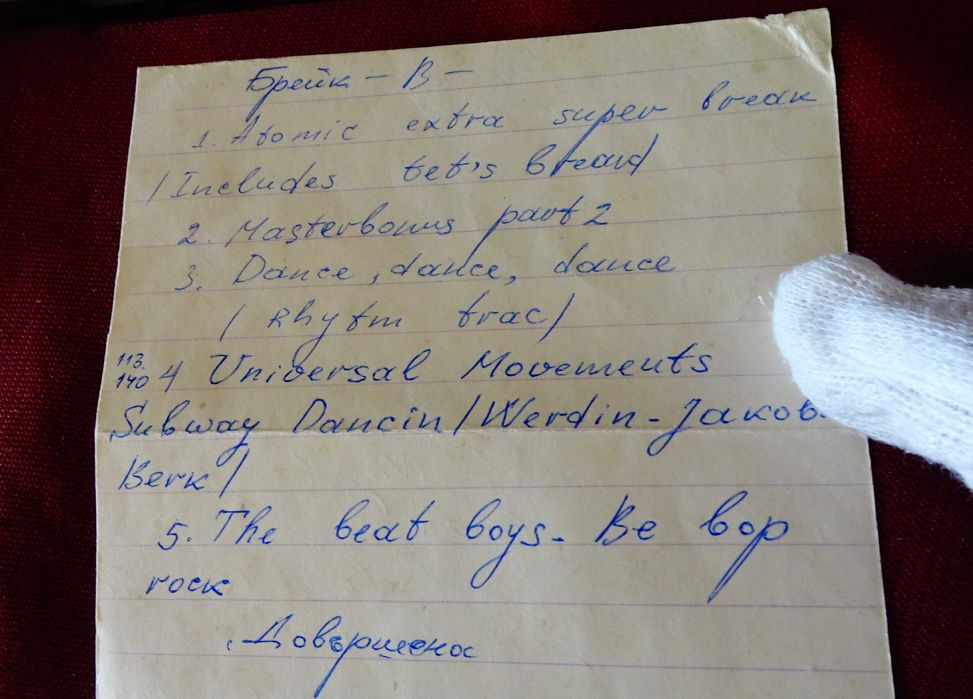 Брейк - В -
1. Atomic extra super break
/Includes tet's break/
2. Masterbonus part 2
3. Dance, dance, dance
/ Rhytm trac/
113.
140 4 Universal Movements
Subway Dancin/Werdin-Jakob-
Berk/
5. The beat boys - Be bop
rock
Довършена